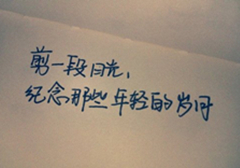 剪一段月光，
纪念那些年轻的岁月